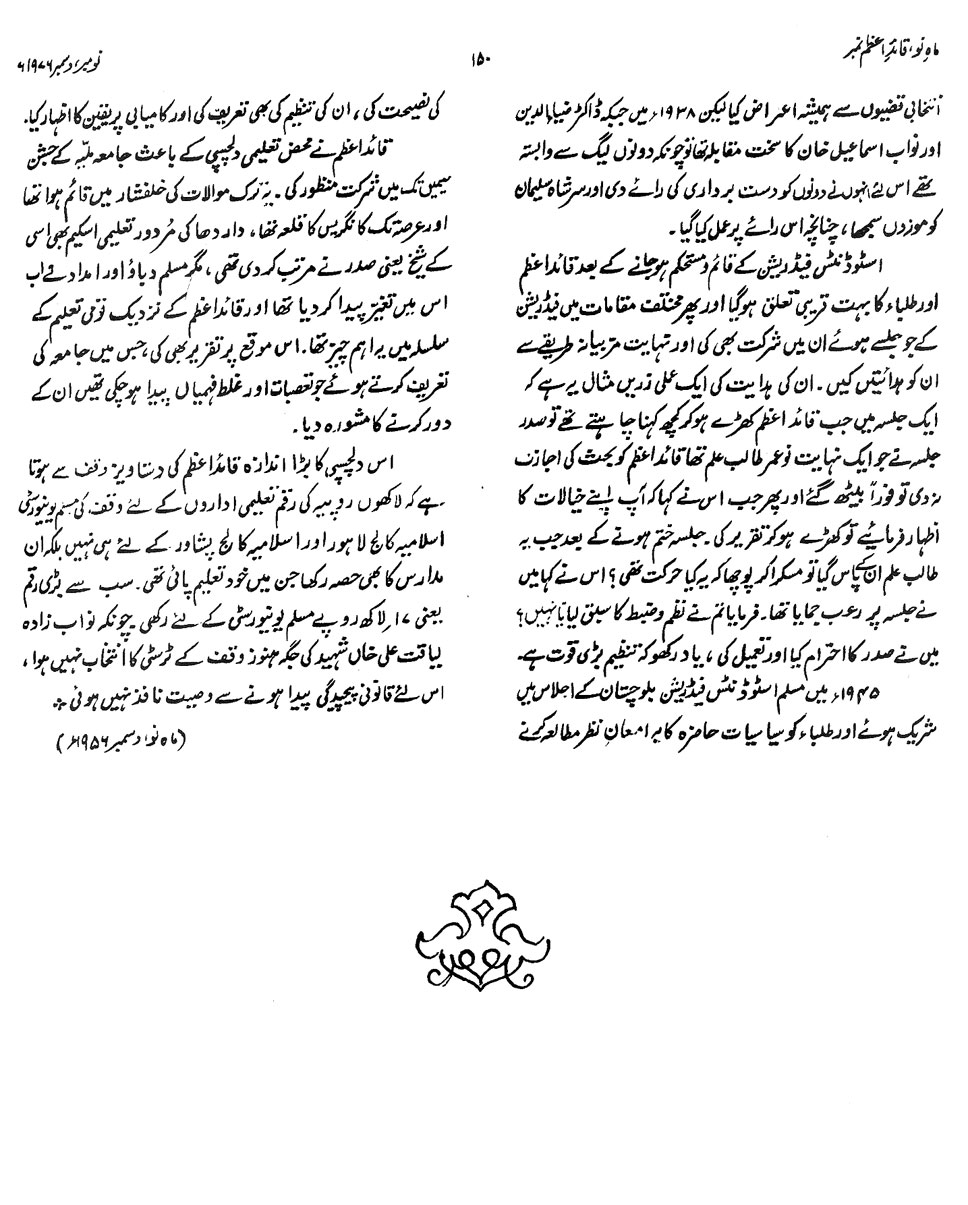 ماہِ نو، قائدِ اعظم نمبر
۱۵۰
نومبر، دسمبر ۱۹۷۶ء
انتخابی قضیوں سے ہمیشہ اعراض کیا لیکن ۱۹۳۸ء میں جبکہ ڈاکٹر ضیاالدین
اور نواب اسماعیل خان کا سخت مقابلہ تھا تو چونکہ دونوں لیگ سے وابستہ
تھے اس لئے انہوں نے دونوں کو دست برداری کی رائے دی اور سر شاہ سلیمان
کو موزوں سمجھا، چنانچہ اس رائے پر عمل کیا گیا۔
اسٹوڈنٹس فیڈریشن کے قائم و مستحکم ہوجانے کے بعد قائد اعظم
اور طلباء کا بہت قریبی تعلق ہوگیا اور پھر مختلف مقامات میں فیڈریشن
کے جو جلسے ہوئے ان میں شرکت بھی کی اور نہایت مربیانہ طریقے سے
ان کو ہدائتیں کیں۔ ان کی ہدایت کی ایک عملی زریں مثال یہ ہے کہ
ایک جلسہ میں جب قائد اعظم کھڑے ہوکر کچھ کہنا چاہتے تھے تو صدر
جلسہ نے جو ایک نہایت نوعمر طالب علم تھا قائد اعظم کو بحث کی اجازت
نہ دی تو فوراً بیٹھ گئے اور پھر جب اس نے کہا کہ آپ اپنے خیالات کا
اظہار فرمائیے تو کھڑے ہوکر تقریر کی۔ جلسہ ختم ہونے کے بعد جب یہ
طالب علم ان کے پاس گیا تو مسکرا کر پوچھا کہ یہ کیا حرکت تھی؟ اس نے کہا میں
نے جلسہ پر رعب جمایا تھا۔ فرمایا تم نے نظم و ضبط کا سبق لیا یا نہیں؟
میں نے صدر کا احترام کیا اور تعمیل کی، یاد رکھو کہ تنظیم بڑی قوت ہے۔
۱۹۴۵ء میں مسلم اسٹوڈنٹس فیڈریشن بلوچستان کے اجلاس میں
شریک ہوئے اور طلباء کو سیاسیات حاضرہ کا بہ امعانِ نظر مطالعہ کرنے
کی نصیحت کی، ان کی تنظیم کی بھی تعریف کی اور کامیابی پر یقین کا اظہار کیا۔
قائد اعظم نے محض تعلیمی دلچسپی کے باعث جامعہ ملیہ کے جشن
سیمیں تک میں شرکت منظور کی۔ یہ ترک موالات کی خلفشار میں قائم ہوا تھا
اور عرصہ تک کانگریس کا قلعہ تھا، داردھا کی مُردور تعلیمی اسکیم بھی اسی
کے شیخ یعنی صدر نے مرتب کردی تھی، مگر مسلم دباؤ اور امداد نے اب
اس میں تغیّر پیدا کر دیا تھا اور قائد اعظم کے نزدیک قومی تعلیم کے
سلسلہ میں یہ اہم چیز تھا۔ اس موقع پر تقریر بھی کی، جس میں جامعہ کی
تعریف کرتے ہوئے جو تعصبات اور غلط فہمیاں پیدا ہوچکی تھیں ان کے
دور کرنے کا مشورہ دیا۔
اس دلچسپی کا بڑا اندازہ قائد اعظم کی دستاویز وقف سے ہوتا
ہے کہ لاکھوں روپیہ کی رقم تعلیمی اداروں کے لئے وقف کی مسلم یونیورسٹی
اسلامیہ کالج لاہور اور اسلامیہ کالج پشاور کے لئے ہی نہیں بلکہ ان
مدارس کا بھی حصہ رکھا جن میں خود تعلیم پائی تھی۔ سب سے بڑی رقم
یعنی ۱۷ لاکھ روپے مسلم یونیورسٹی کے لئے رکھی۔ چونکہ نواب زادہ
لیاقت علی خاں شہید کی جگہ ہنوز وقف کے ٹرسٹی کا انتخاب نہیں ہوا،
اس لئے قانونی پیچیدگی پیدا ہونے سے وصیت نافذ نہیں ہوئی
(ماہ نو، دسمبر ۱۹۵۶ء)